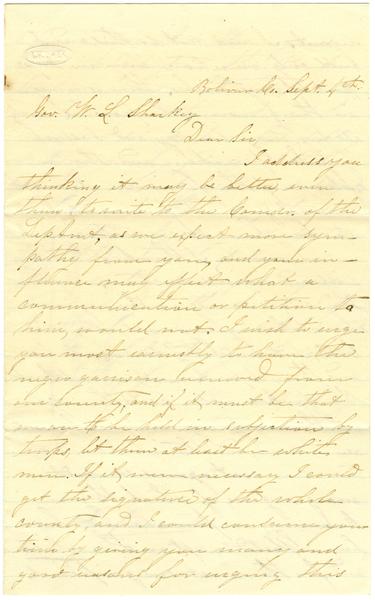 Bolivar Co. Sept. 4th.
Gov. W. L. Sharkey
Dear Sir,
I address you
thinking it may be better even
than to write to the Comdr. of the
Deptmt, as we expect more sym-
pathy from you, and your in-
fluence may effect what a
communication or petition to
him, would not. I wish to urge
you most earnestly to have the
negro garrison removed from
our county, and if it must be that
we are to be held in subjection by
troops, let them at least be white
men. If it were necessary I could
get the signature of the whole
county, and I could consume your
time by giving you many and
good reasons for urging this